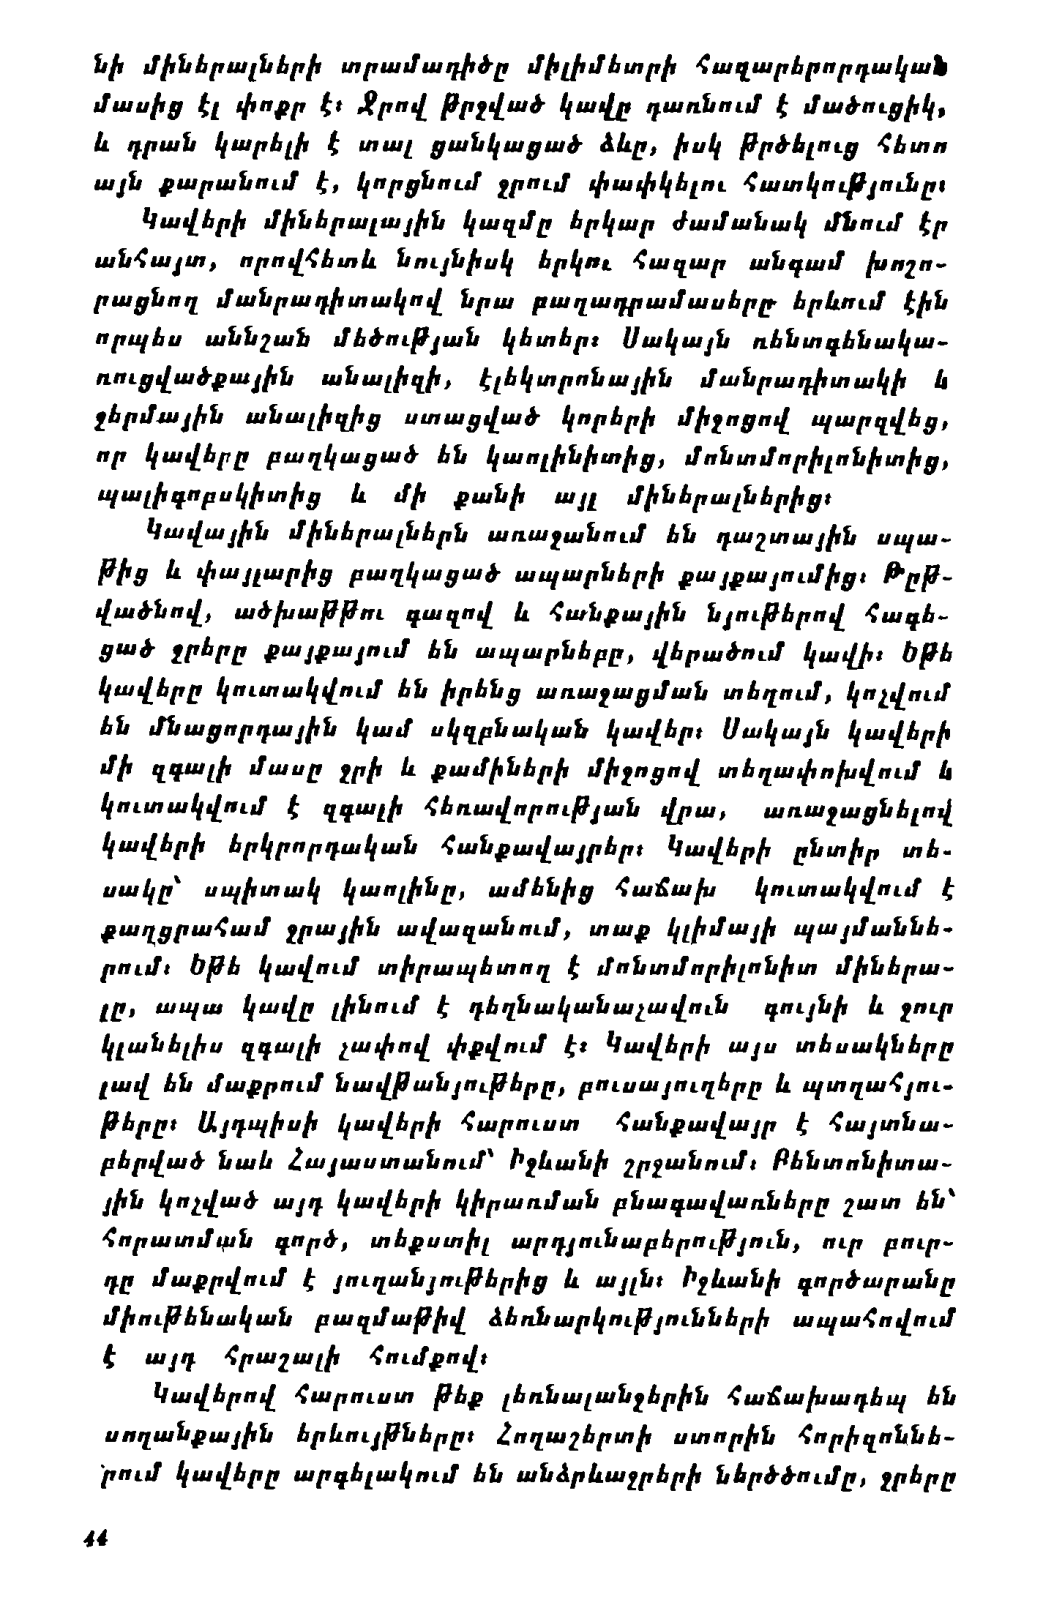 նի միներալների տրամադիծը միլիմետրի հազարերորդական
մասից էլ փոքր է։ Ջրով թրջված կավը դառնում է մածուցիկ,
և դրան կարելի է տալ ցանկացած ձևը, իսկ թրծելուց հետո
այն քարանում է, կորցնում ջրում փափկելու հատկությունը։
Կավերի միներալային կազմը երկար ժամանակ մնում էր
անհայտ, որովհետև նույնիսկ երկու հազար անգամ խոշո-
րացնող մանրադիտակով նրա բաղադրամասերը երևում էին
որպես աննշան մեծության կետեր։ Սակայն ռենտգենակա-
ռուցվածքային անալիզի, էլեկտրոնային մանրադիտակի և
ջերմային անալիզից ստացված կորերի միջոցով պարզվեց,
որ կավերը բաղկացած են կաոլինիտից, մոնտմորիլոնիտից,
պալիգորսկիտից և մի քանի այլ միներալներից։
Կավային միներալներն առաջանում են դաշտային սպա-
թից և փայլարից բաղկացած ապարների քայքայումից։ Թըթ-
վածնով, ածխաթթու գազով և հանքային նյութերով հագե-
ցած ջրերը քայքայում են ապարները, վերածում կավի։ Եթե
կավերը կուտակվում են իրենց առաջացման տեղում, կոչվում
են մնացորդային կամ սկզբնական կավեր։ Սակայն կավերի
մի զգալի մասը ջրի և քամիների միջոցով տեղափոխվում և
կուտակվում է զգալի հեռավորության վրա, առաջացնելով
կավերի երկրորդական հանքավայրեր։ Կավերի ընտիր տե-
սակը՝ սպիտակ կաոլինը, ամենից հաճախ կուտակվում է
քաղցրահամ ջրային ավազանում, տաք կլիմայի պայմաննե-
րում։ Եթե կավում տիրապետող է մոնտմորիլոնիտ միներա-
լը, ապա կավը լինում է դեղնականաչավուն գույնի և ջուր
կլանելիս զգալի չափով փքվում է։ Կավերի այս տեսակները
լավ են մաքրում նավթանյութերը, բուսայուղերը և պտղահյու-
թերը։ Այդպիսի կավերի հարուստ հանքավայր է հայտնա-
բերված նաև Հայաստանում՝ Իջևանի շրջանում։ Բենտոնիտա-
յին կոչված այդ կավերի կիրառման բնագավառները շատ են՝
հորատման գործ, տեքստիլ արդյունաբերություն, ուր բուր-
դը մաքրվում է յուղանյութերից և այլն։ Իջևանի գործարանը
միութենական բազմաթիվ ձեռնարկությունների ապահովում
է այդ հրաշալի հումքով։
Կավերով հարուստ թեք լեռնալանջերին հաճախադեպ են
սողանքային երևույթները։ Հողաշերտի ստորին հորիզոննե-
րում կավերը արգելակում են անձրևաջրերի ներծծումը, ջրերը
44